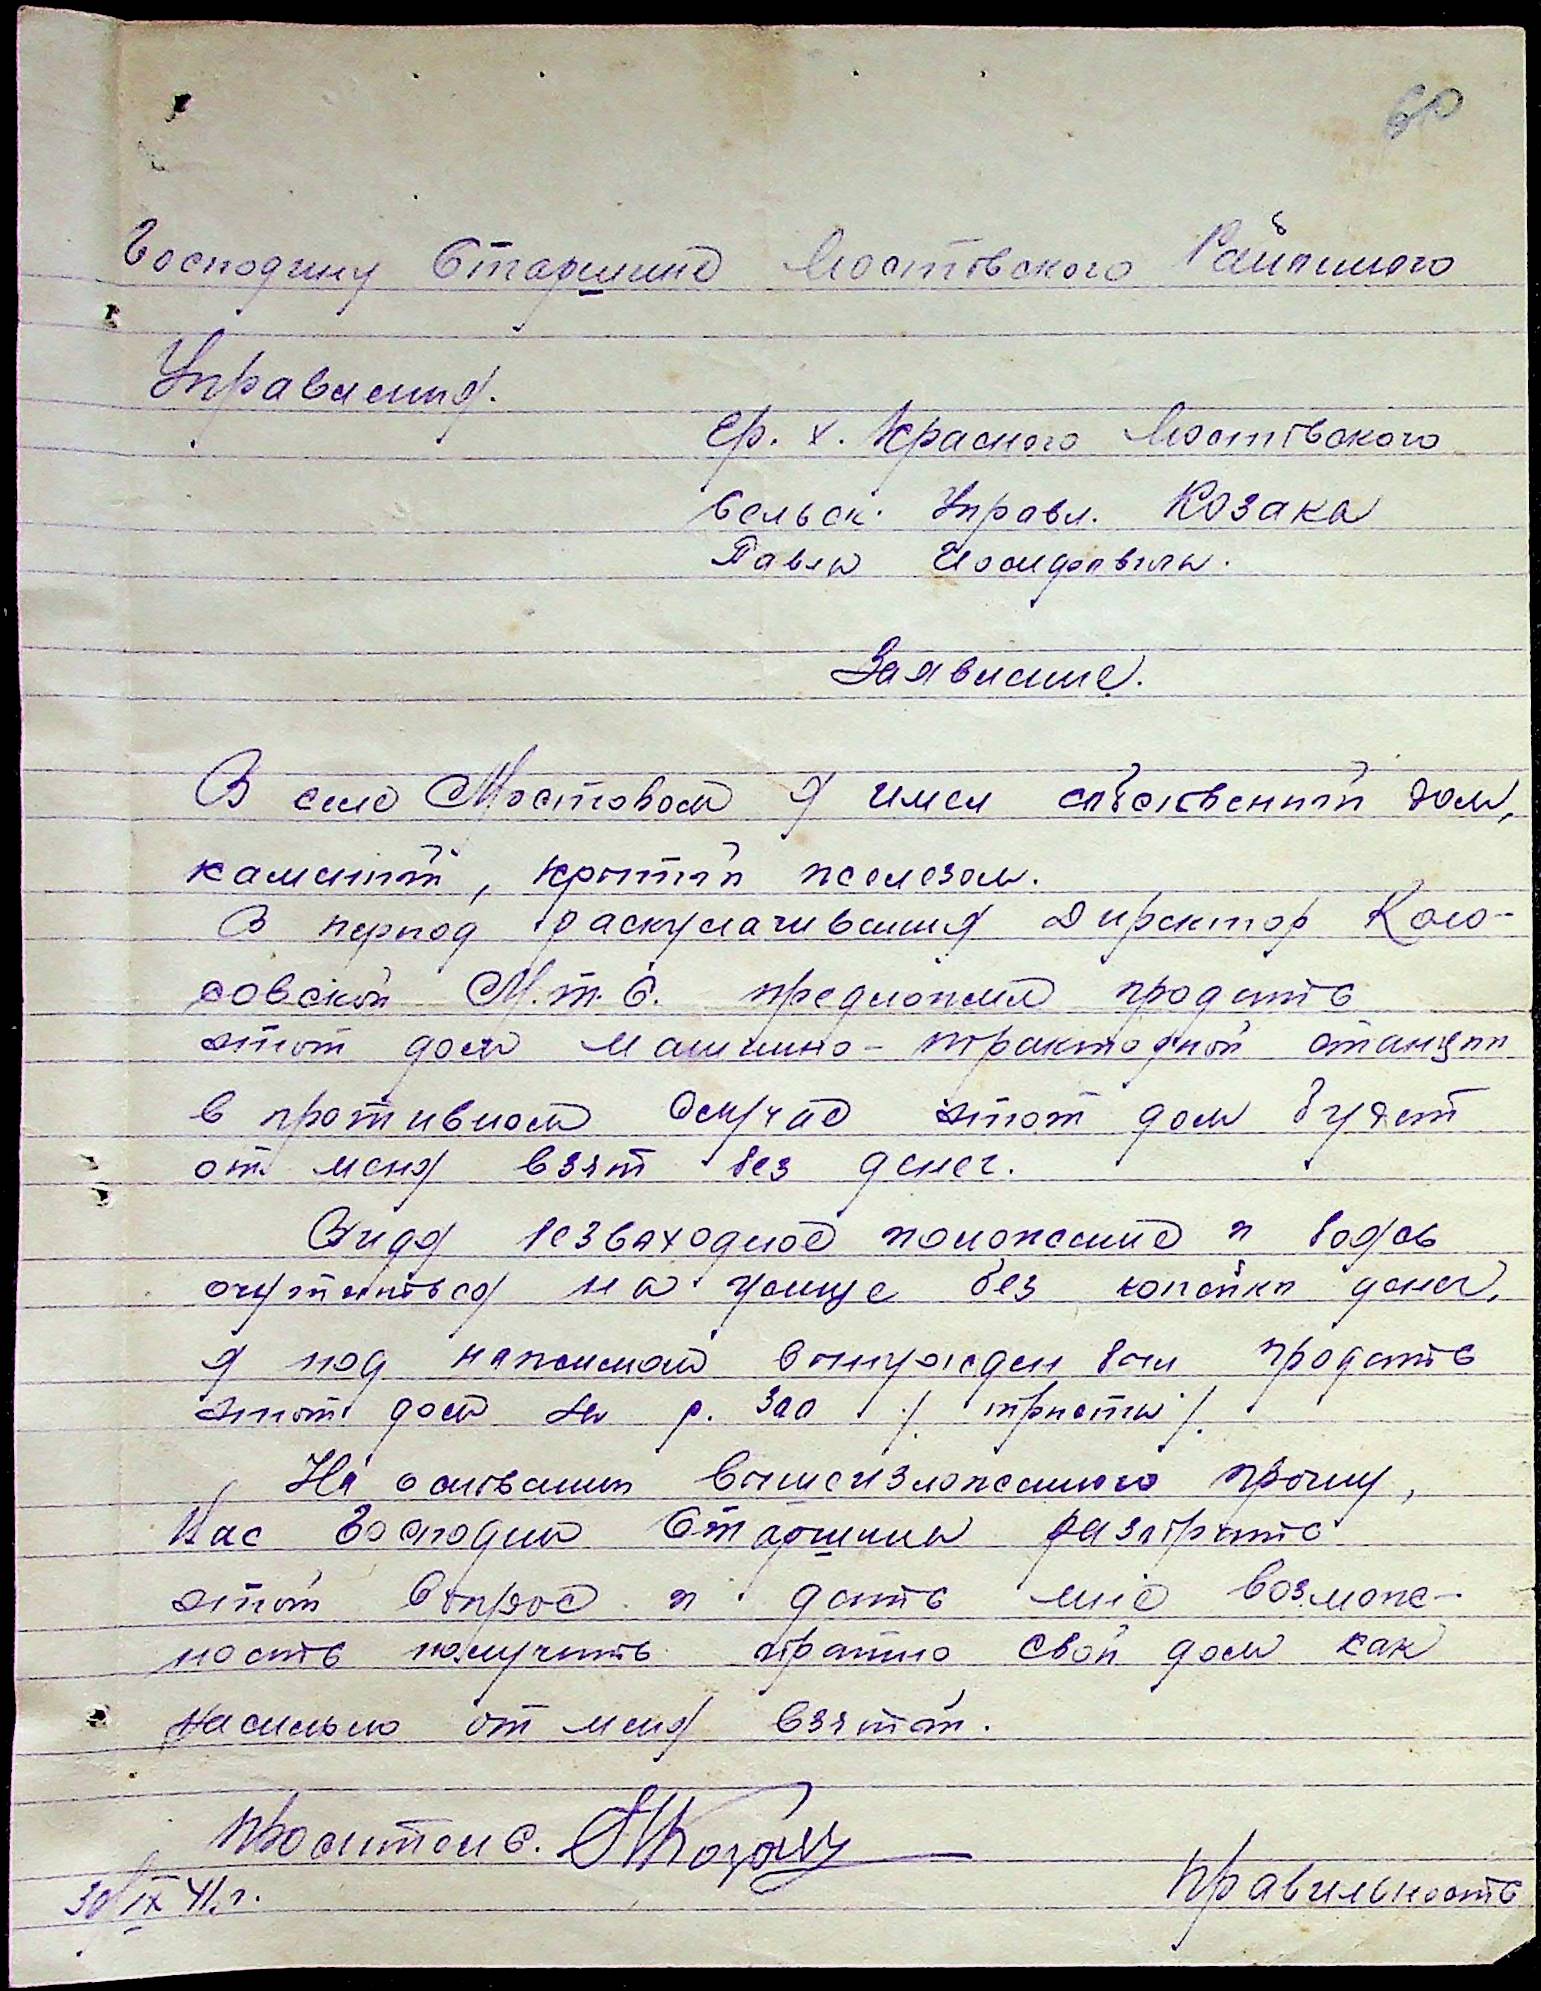 60
Господину Старшине Мостовского Районного
Управления.
гр. х. Красного Мостовского
Сельск. Управл. Козака
Павла Иосифовича.
Заявление.
В селе Мостовом я имел собственный дом,
каменный, крытый железом.
В период раскулачивания директор Коло-
совской М.Т.С. предложил продать
этот дом машинно-тракторной станции
в противном случае этот дом будет
от меня взят без денег.
Видя безвыходное положение и боясь
очутиться на улице без копейки денег,
я под нажимом вынужден был продать
этот дом за р. 300 /триста/.
На основании вышеизложенного прошу,
Вас Господин Старшина разобрать
этот вопрос и дать мне возмож-
ность получить обратно свой дом как
насильно от меня взятый.
Проситель. ПКозак
30/IX 41 г.
Правильность